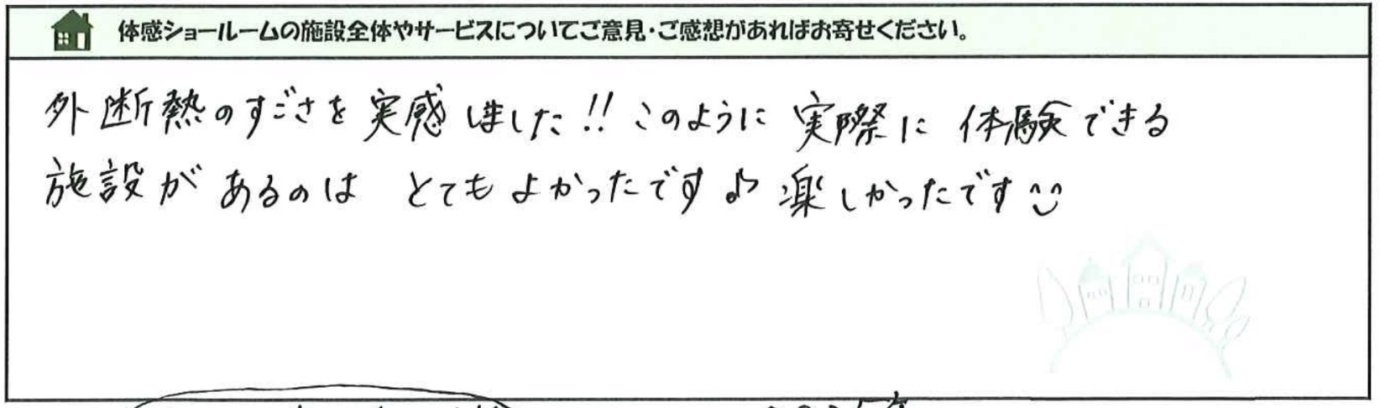 体感ショールームの施設全体やサービスについてご意見・ご感想があればお寄せください。
外断熱のすごさを実感しました!! このように実際に体験できる
施設があるのは とてもよかったです♪ 楽しかったです